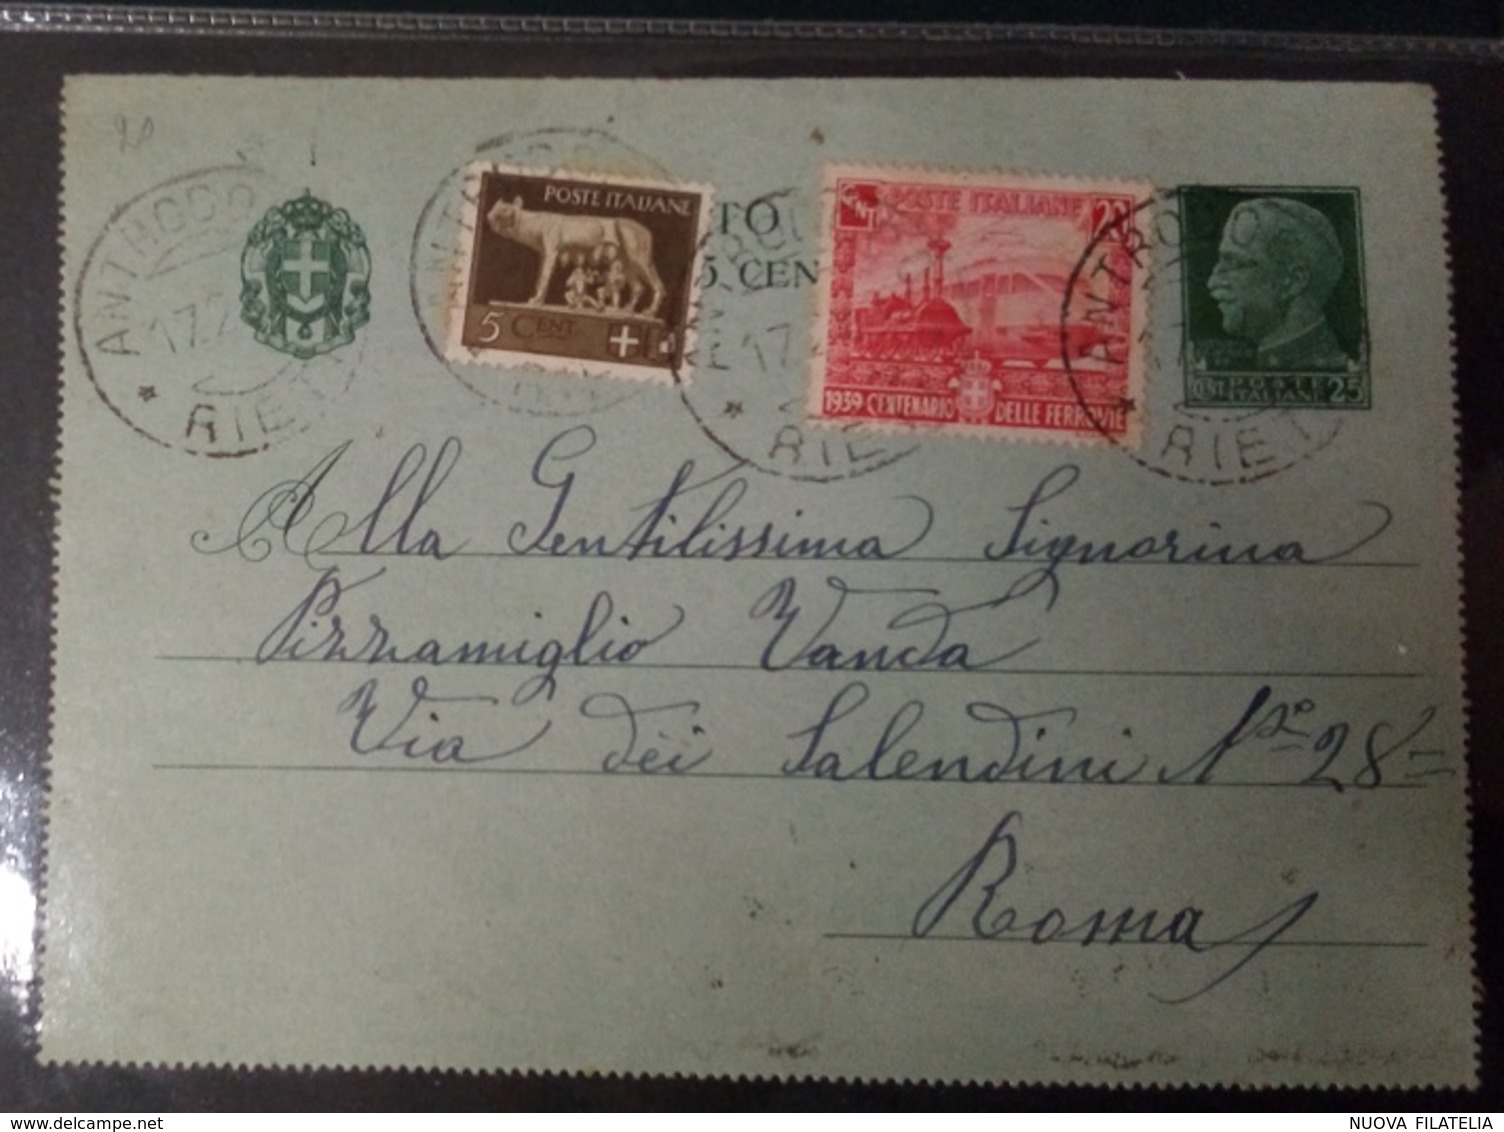 20
ANTRODOCO
17.2
RIETI
POSTE ITALIANE
5 CENT.
TO
5. CEN
CENT POSTE ITALIANE 20
1939 CENTENARIO DELLE FERROVIE
ANTRODOCO
17
RIETI
CENT. POSTE ITALIANE 25
Alla Gentilissima Signorina
Pizzamiglio Vanda
Via dei Salendini No 28=
Roma
NUOVA FILATELIA